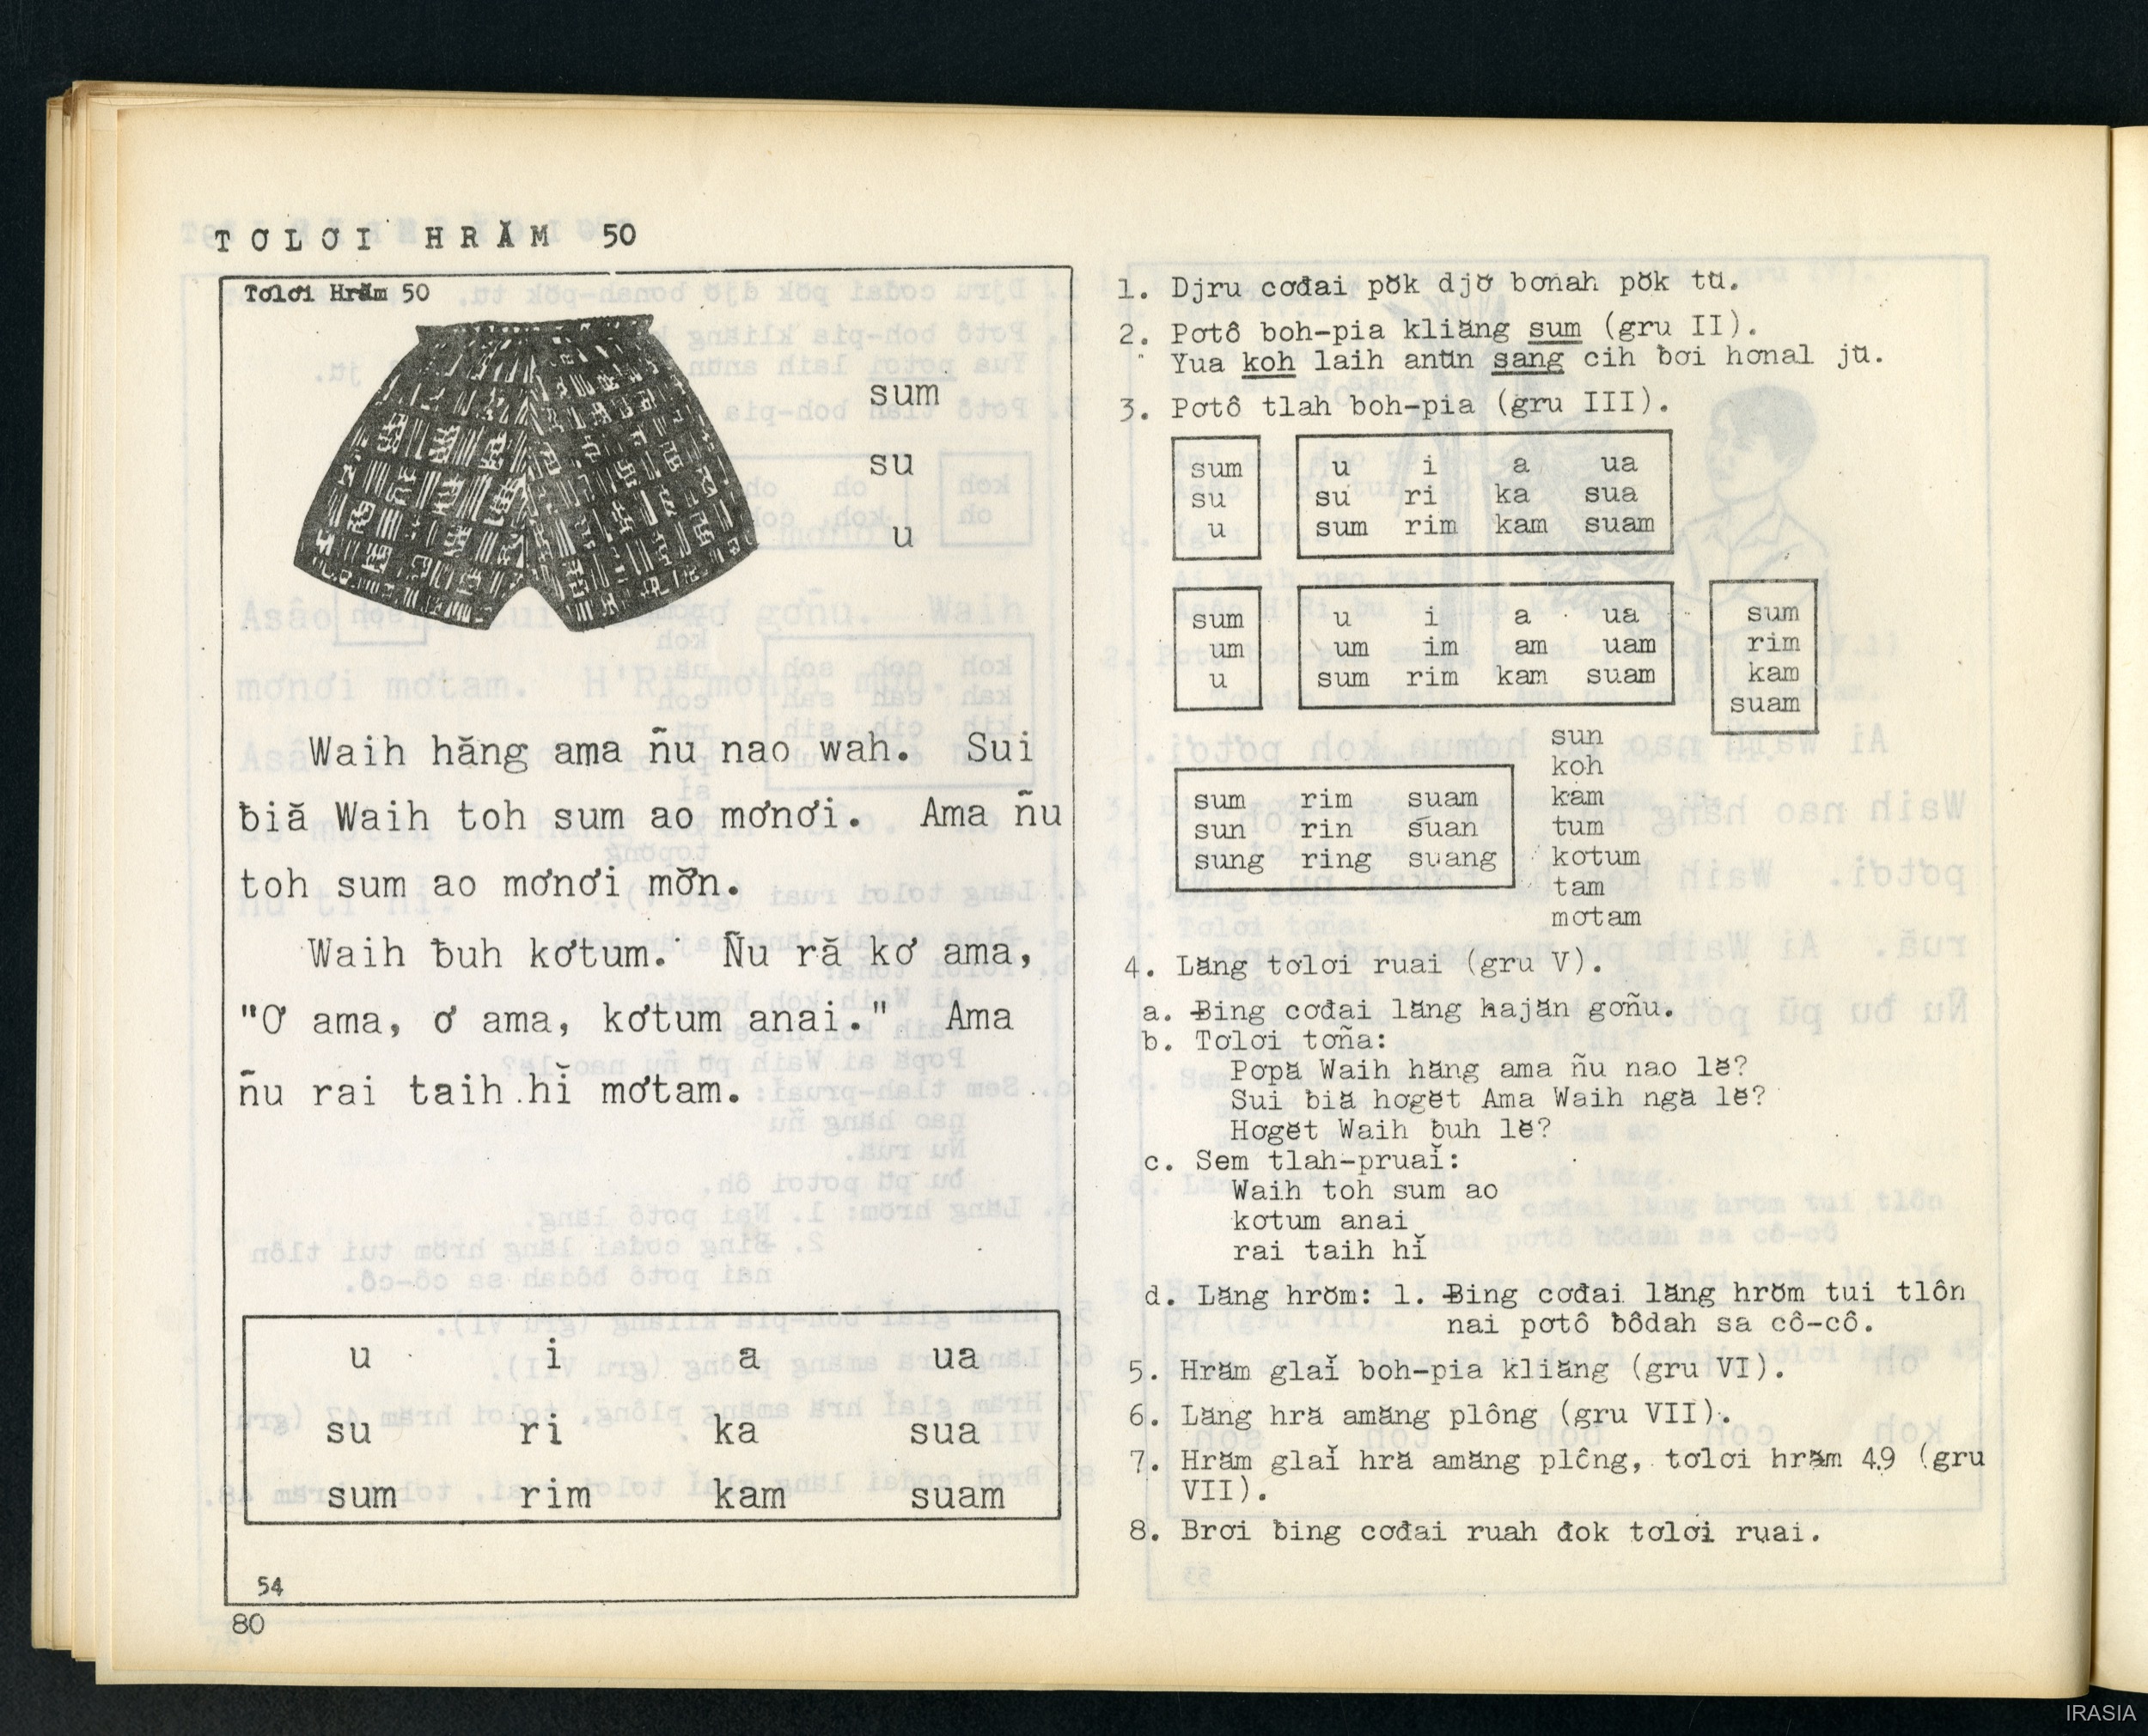 TƠLƠI HRĂM 50
Tơlơi Hrăm 50
sum
su
u
Waih hăng ama ñu nao wah. Sui
ƀiă Waih toh sum ao mơnơi. Ama ñu
toh sum ao mơnơi mơ̆n.
Waih ƀuh kơtum. Ñu ră kơ ama,
"Ơ ama, ơ ama, kơtum anai." Ama
ñu rai taih hĭ mơtam.
u i a ua
su ri ka sua
sum rim kam suam
54
80
1. Djru cơđai pŏk djơ̆ bơnah pŏk tŭ.
2. Pơtô boh-pia kliăng sum (gru II).
Yua koh laih anŭn sang cih ƀơi hơnal jŭ.
3. Pơtô tlah boh-pia (gru III).
sum u i a ua
su su ri ka sua
u sum rim kam suam
sum u i a ua sum
um um im am uam rim
u sum rim kam suam kam
suam
sun
koh
sum rim suam kam
sun rin suan tum
sung ring suang kơtum
tam
mơtam
4. Lăng tơlơi ruai (gru V).
a. Ƀing cơđai lăng hajăn gơñu.
b. Tơlơi tơña:
Pơpă Waih hăng ama ñu nao lĕ?
Sui ƀiă hơgĕt Ama Waih ngă lĕ?
Hơgĕt Waih ƀuh lĕ?
c. Sem tlah-pruaĭ:
Waih toh sum ao
kơtum anai
rai taih hĭ
d. Lăng hrŏm: 1. Ƀing cơđai lăng hrŏm tui tlôn
nai pơtô ƀôdah sa cô-cô.
5. Hrăm glaĭ boh-pia kliăng (gru VI).
6. Lăng hră amăng plông (gru VII).
7. Hrăm glaĭ hră amăng plông, tơlơi hrăm 49 (gru
VII).
8. Brơi ƀing cơđai ruah đok tơlơi ruai.
IRASIA